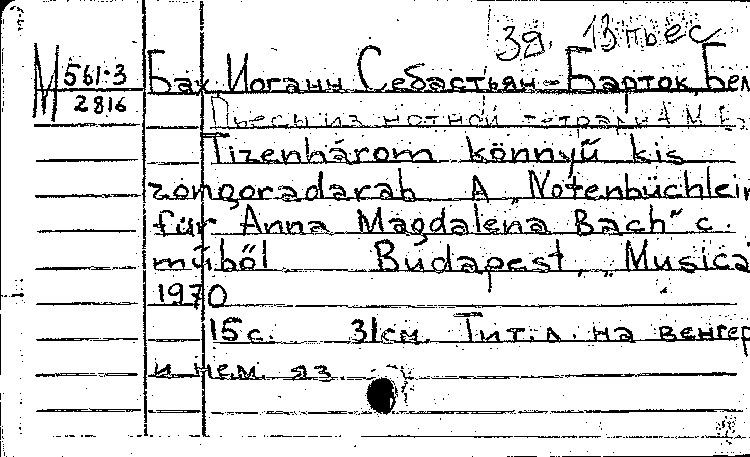 39. 13 пьес
М 561-3
2816
Бах, Иоганн Себастьян - Барток, Бел
Пьесы из нотной тетради А. М. Ба
Tizenhárom könnyű kis
zongoradarab A „Notenbüchlein
für Anna Magdalena Bach" c.
műből Budapest, „Musica
1970
15 с. 31 см. Тит. л. на венгер
и нем. яз.